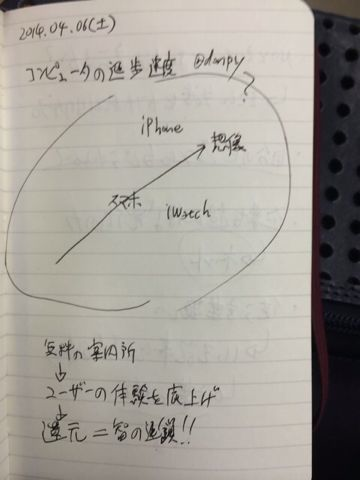 2014.04.06(土)
コンピュータの進歩速度 @donpy
?
iPhone
想像
スマホ
iWatch
無料の案内所
↓
ユーザーの体験を底上げ
↓
還元=智の連鎖!!